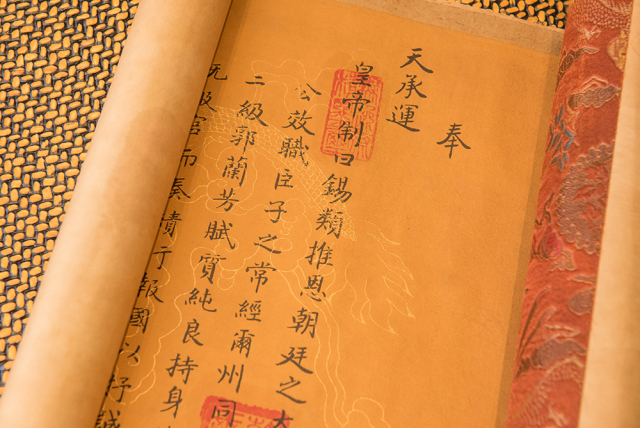 奉
天承運
皇帝制曰錫類推恩朝廷之大
公效職臣子之常經爾州同
二級郭蘭芳賦質純良持身
官而奏報國以抒誠